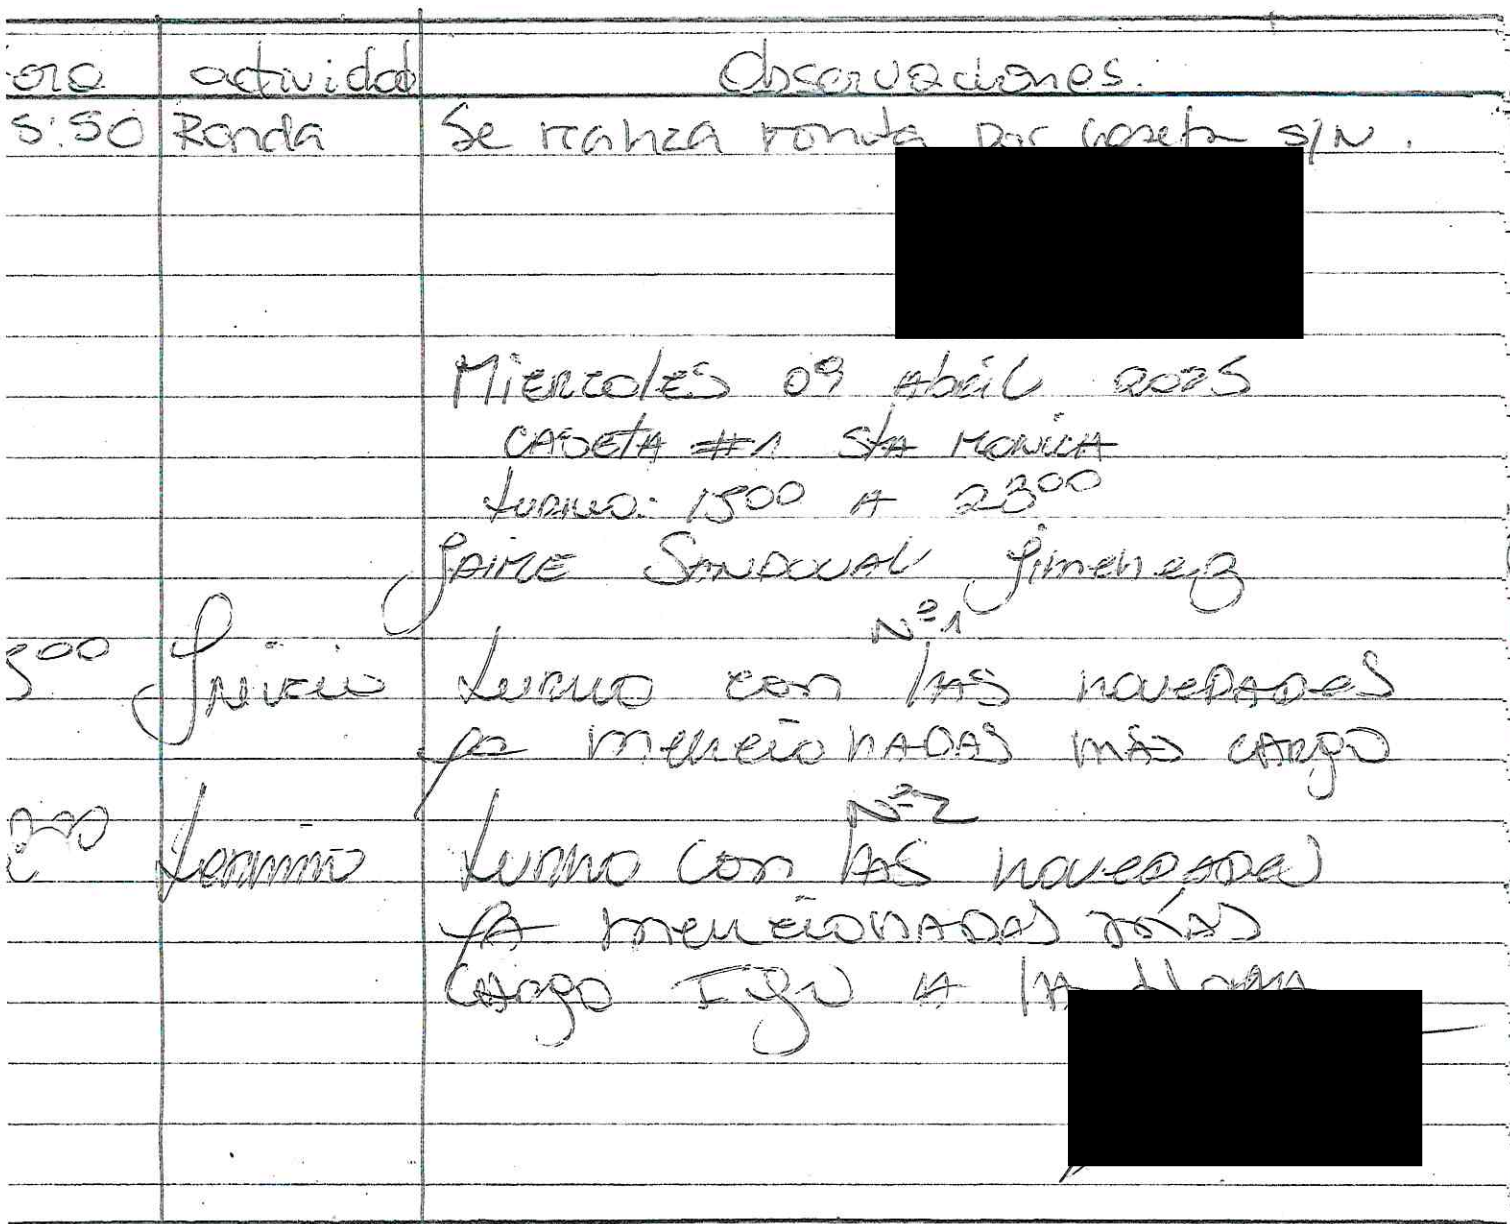 ora actividad Observaciones.
5:50 Ronda Se realiza ronda por caseta S/N.
Miercoles 09 Abril 2025
CASETA #1 StA MONICA
turno: 1500 A 2300
JAIME SANDOVAL Jimenez
Nº1
500 Inicio turno con lAS noveDADes
ya mencionADAS mÁS CARgo
Nº2
termino turno con lAS noveDADes
yA mencionADAS mÁS
CARgo A lA